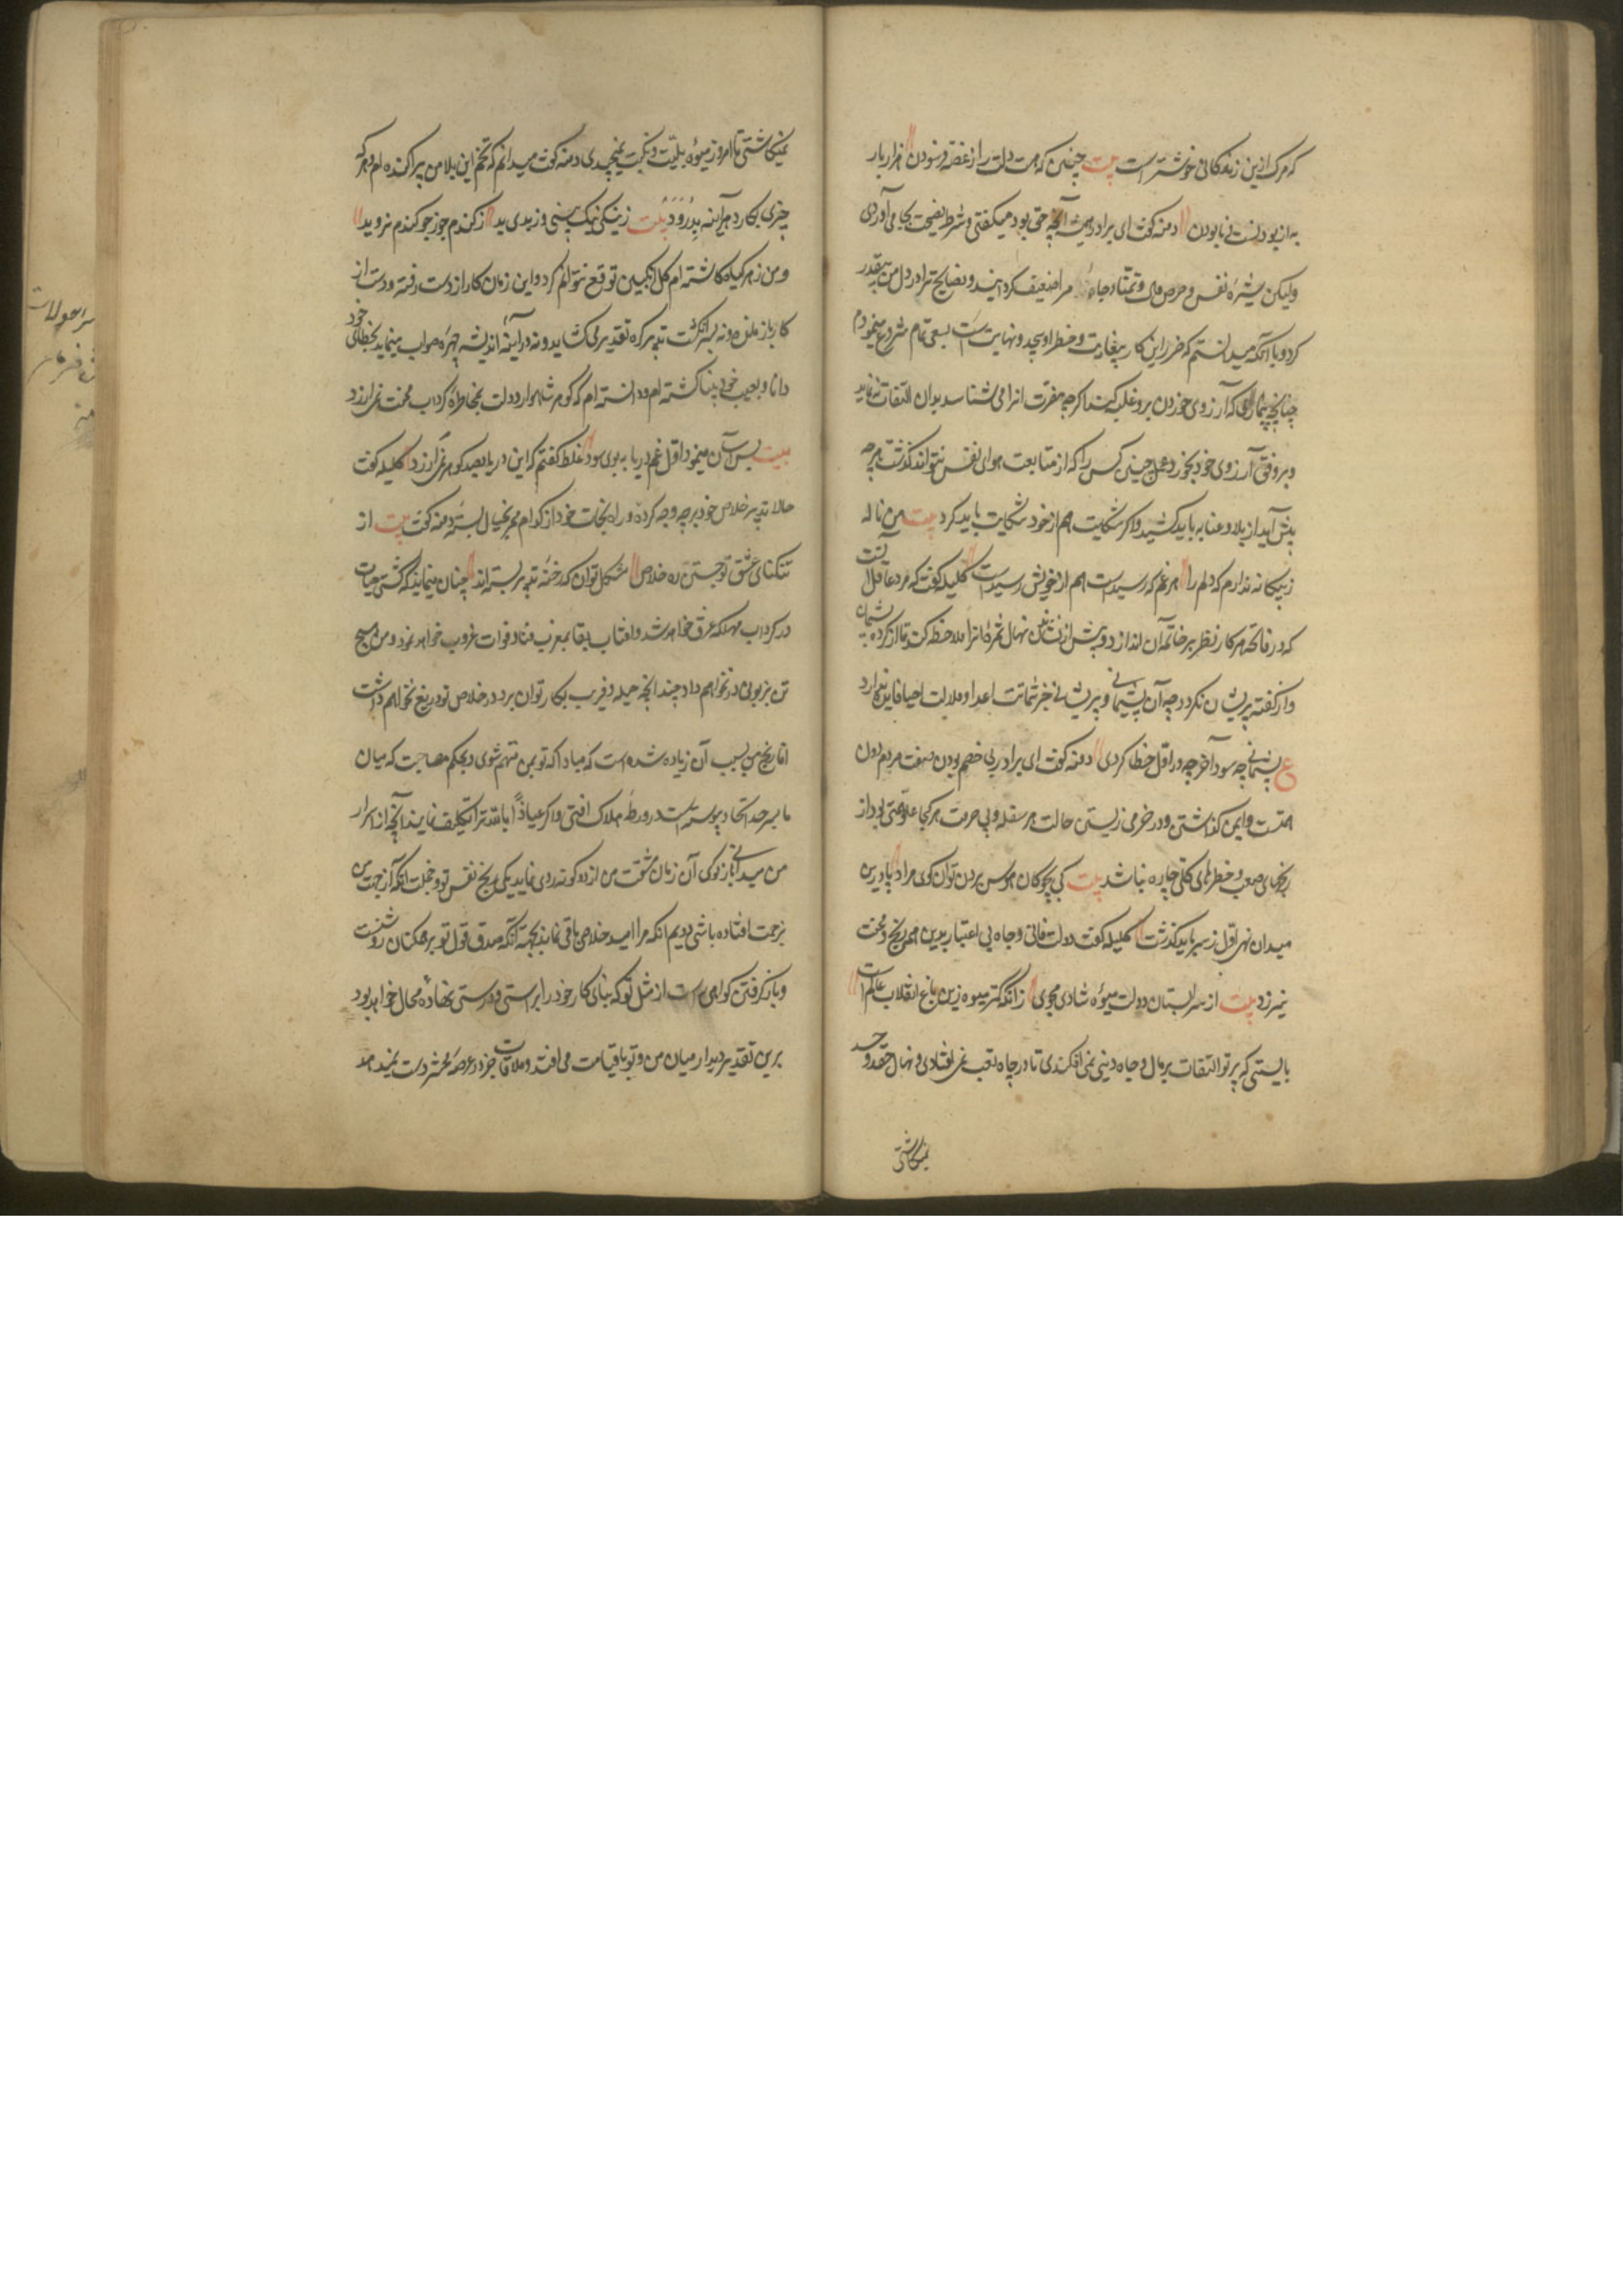 که مرک ازین زندکانی خوشتر است بیت چنین که هست دلت را از غصه فرسودن هزار بار
به از بودنست نابودن دمنه کفت ای برادر همیشه آنچه حق بود میکفتی و شرط نصیحت بجا می آوردی
ولیکن شره نفس و حرص مال و تمنای جاه مرا ضعیف کردانید و نصایح ترا در دل من بیقدر
کرد و با آنکه میدانستم که ضرر این کار بیغایت و خطر او بیحد و نهایت است بسعی تمام شروع مینمودم
چنانچه بیماری که آرزوی خوردن برو غلبه کند اکر چه مضرت انرا می شناسد بدان التفات نه نماید
و بر وفق آرزوی خود بخورد چنین کس را که از متابعت هوای نفس نتواند کذشت هرچه
پیش آید از بلا و عنا به باید کشید و اکر شکایت هم از خود شکایت باید کرد بیت من ناله
ز بیکانه ندارم که دلم را هر غم که رسیدست هم از خویش رسیدست کلیله کفت که مرد عاقل آنست
که در فاتحه هر کار نظر بر خاتمه آن اندازد و پیش از نشاندن نهال ثمره انرا ملاحظه کند تا از کرده پشیمان
و از کفته پریشان نکردد چه آن پشیمانی و پریشانی جز شماتت اعدا و ملالت احبا فایده ندارد
ع پشیمانی چه سود آخر چه در اول خطا کردی دمنه کفت ای برادر بی خصم بودن صفت مردم دون
همتست و ایمن کذاشتن و در خرمی زیستن حالت هر سفله و بی حرمت هر کجا علو همتی بود از
رنجهای صعب و خطرهای کلی چاره نباشد بیت کی بچوکان هوس بردن توان کوی مراد پا درین
میدان نهی اول ز سر باید کذشت کلیله کفت دولت فانی و جاه بی اعتبار بدین همه رنج و محنت
نیرزد بیت از سرابستان دولت میوه شادی مجوی زانکه کمتر میوه زین باغ انقلاب عالم است
بایستی که پرتو التفات بر مال و جاه دنیی نمی افکندی تا در چاه تعب نمی افتادی و نهال حقد و حسد
نمیکاشتی
نمیکاشتی تا امروز میوه بلیت و نکبت نمیچیدی دمنه کفت میدانم که تخم این بلا من پراکنده ام و هر که
چیزی بکارد هر آینه بدرود بیت ز نیکی نیک بینی و ز بدی بد ز کندم جو ز جو کندم نروید
و من زهر کیاه کاشته ام کل انکبین توقع نتوانم کرد و این زمان کار از دست رفته و دست از
کار باز مانده نه سر انکشت تدبیر کره تقدیر می کشاید و نه در آینه اندیشه چهره صواب مینماید بخطای خود
دانا و بعیب خود بینا کشته ام و دانسته ام که کوهر شاهوار دولت بمخاطره کرداب محنت نمی ارزد
بیت بس آسان مینمود اول غم دریا به بوی سود غلط کفتم که این دریا بصد کوهر نمی ارزد کلیله کفت
حالا تدبیر خلاص خود بر چه وجه کرده و راه نجات خود از کدام ممر بخیال بسته دمنه کفت بیت از
تنکنای عشق تو جستن ره خلاص مشکل توان که رخنه تدبیر بسته اند چنان مینماید که کشتی حیات
در کرداب مهلکه غرق خواهد شد و آفتاب بقا بمغرب فنا و فوات غروب خواهد نمود و من هیچ
تن بزبونی در نخواهم داد چندانچه حیله و فریب بکار توان برد در خلاص تو دریغ نخواهم داشت
اما رنج من بسبب آن زیاده شده است که مبادا که تو بمن متهم شوی و بحکم مصاحبت که میان
ما بسر حد اتحاد پیوسته است در ورطه هلاک افتی و اکر عیاذا بالله ترا تکلیف نمایند آنچه از اسرار
من میدانی باز کوی آن زمان مشقت من از دو کونه روی نماید یکی رنج نفس تو و خجلت آنکه از جهت من
بزحمت افتاده باشی دویم آنکه مرا امید خلاص باقی نماند بجهه آنکه صدق قول تو بر همکنان روشنست
و باز کرفتن کواهی راست از مثل تو که بنای کار خود را بر راستی و درستی نهاده محال خواهد بود
برین تقدیر دیدار میان من و تو با قیامت می افتد و ملاقات جز در عرصه محشر دست نمیدهد